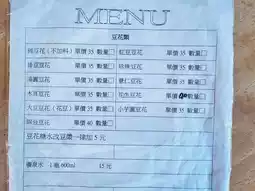 MENU
豆花類
純豆花(不加料) 單價 35 數量□ 紅豆豆花 單價 35 數量□
綠豆豆花 單價 35 數量□ 珍珠豆花 單價 35 數量□
湯圓豆花 單價 35 數量□ 薏仁豆花 單價 35 數量□
木耳豆花 單價 35 數量□ 花生豆花 單價 數量□
大豆豆花(花豆) 單價 35 數量□ 小芋圓豆花 單價 35 數量□
豆花 單價 40 數量□
豆花糖水改豆漿一律加 5 元
礦泉水 1 瓶 600ml 15 元